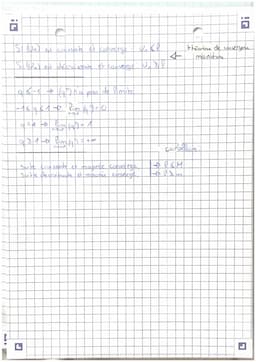 Si (Un) est croissante et converge Un ≤ l
Si (Un) est décroissante et converge Un ≥ l
← théorème de convergence monotone
q ≤ -1 → (qⁿ) n'a pas de limite
-1 < q < 1 → lim qⁿ = 0
q = 1 → lim (qⁿ) = 1
q > 1 → lim (qⁿ) = +∞
Suite croissante et majorée converge → l ≤ M
Suite décroissante et minorée converge → l ≥ m